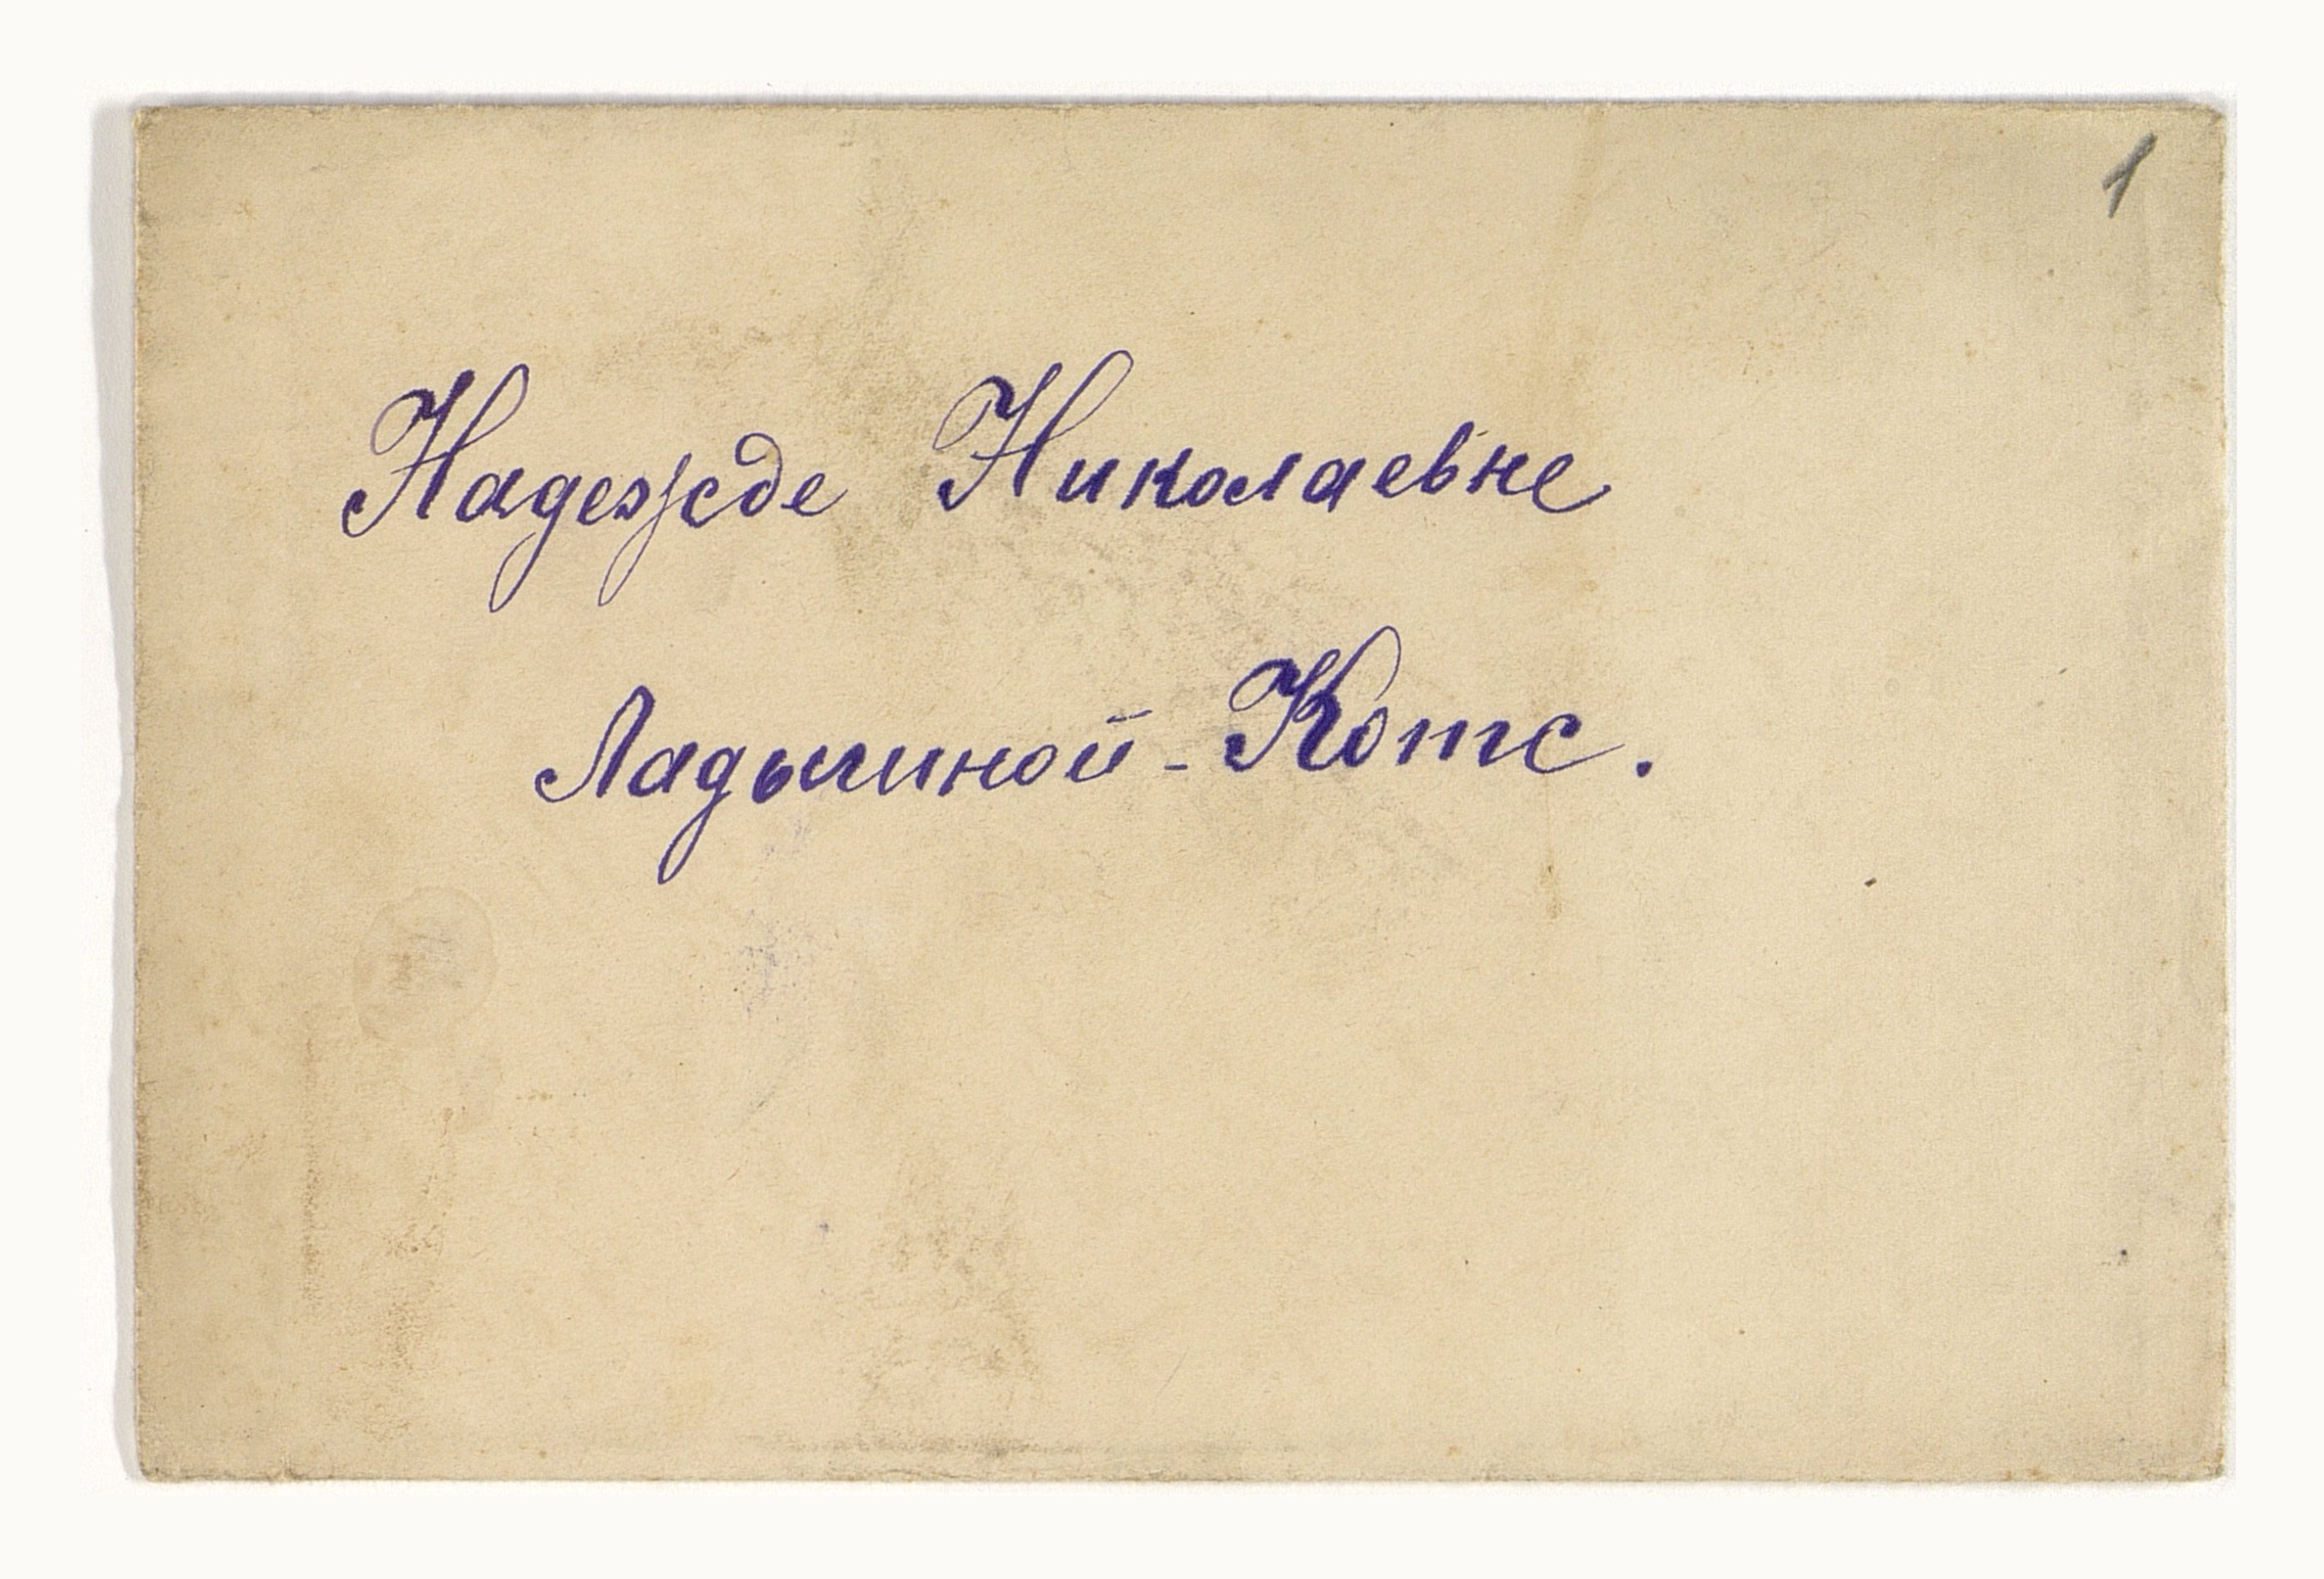 1
Надежде Николаевне
Ладыгиной-Котс.